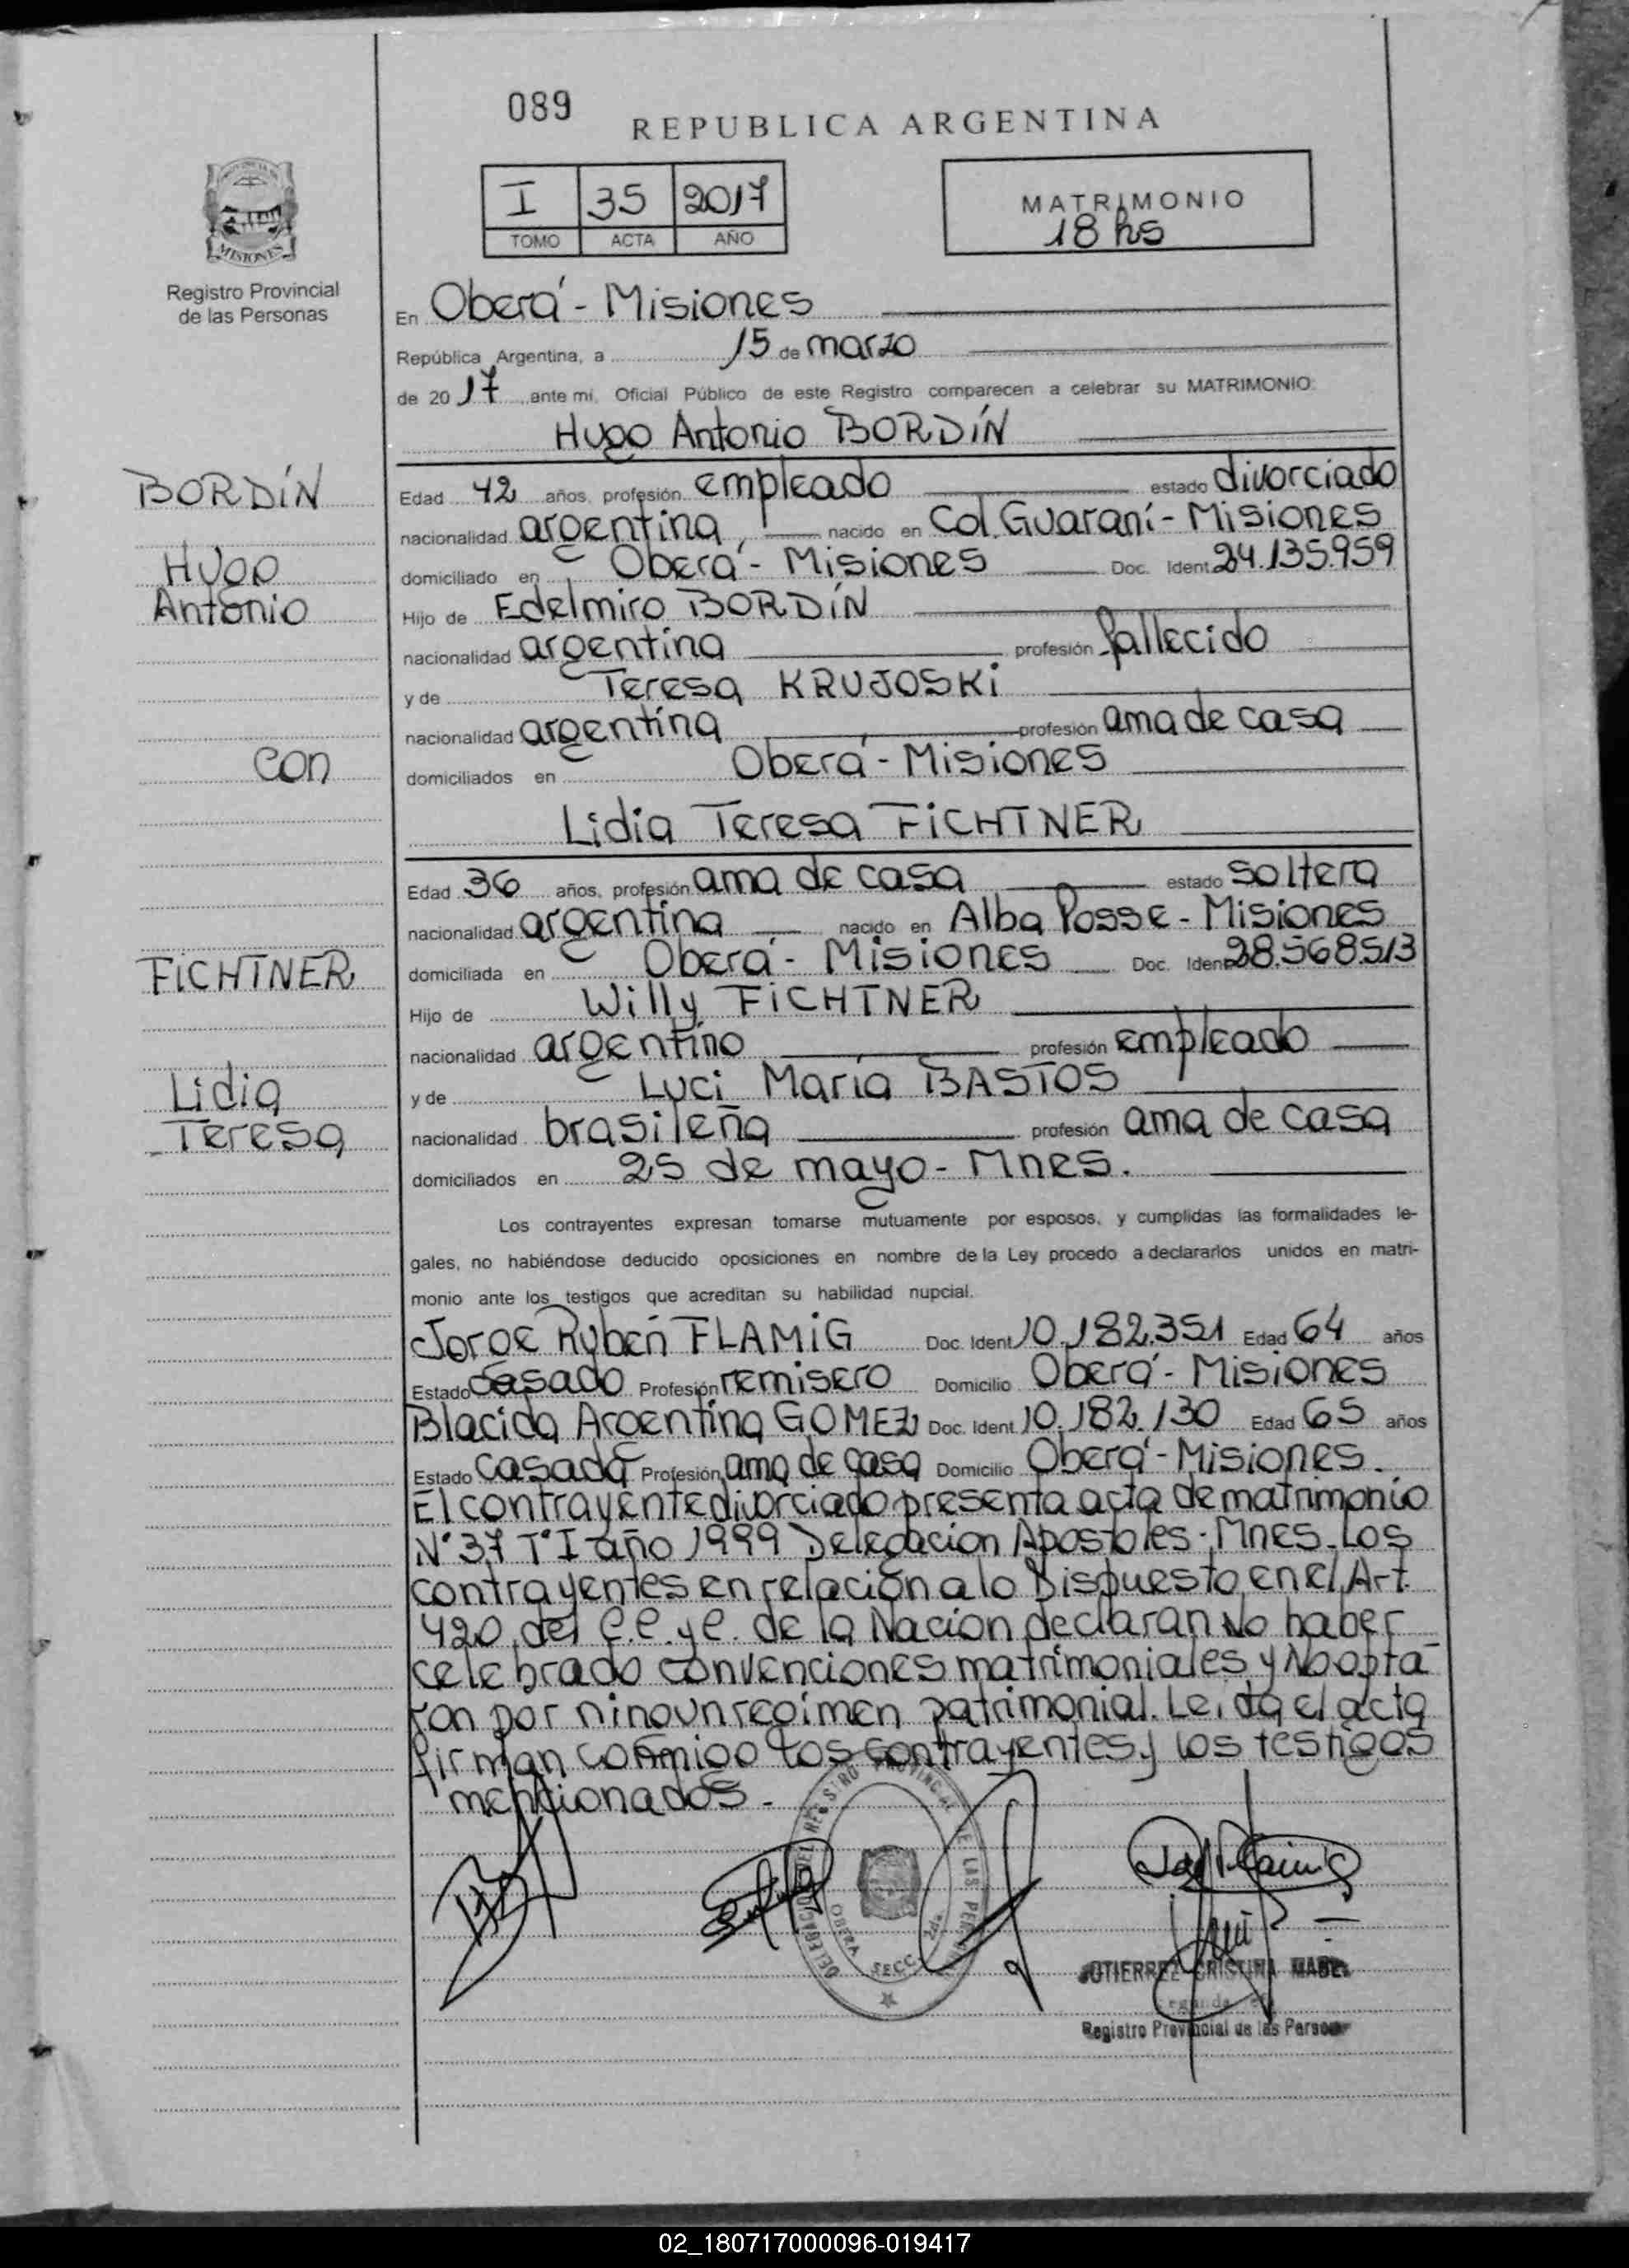 089
REPUBLICA ARGENTINA
I 35 2017
TOMO ACTA AÑO
MATRIMONIO
18 hs
MISIONES
Registro Provincial
de las Personas
En Oberá - Misiones
República Argentina, a 15 de marzo
de 2017 ante mi, Oficial Público de este Registro comparecen a celebrar su MATRIMONIO:
Hugo Antonio BORDÍN
BORDÍN
Hugo
Antonio
con
FICHTNER
Lidia
Teresa
Edad 42 años, profesión empleado estado divorciado
nacionalidad argentina, nacido en Col. Guaraní - Misiones
domiciliado en Oberá - Misiones Doc. Ident. 24.135.959
Hijo de Edelmiro BORDÍN
nacionalidad argentina profesión fallecido
y de Teresa KRUJOSKi
nacionalidad argentina profesión ama de casa
domiciliados en Oberá - Misiones
Lidia Teresa FICHTNER
Edad 36 años, profesión ama de casa estado soltera
nacionalidad argentina nacido en Alba Posse - Misiones
domiciliada en Oberá - Misiones Doc. Ident. 28.568.513
Hijo de Willy FICHTNER
nacionalidad argentino profesión empleado
y de Luci María BASTOS
nacionalidad brasileña profesión ama de casa
domiciliados en 25 de mayo - Mnes.
Los contrayentes expresan tomarse mutuamente por esposos, y cumplidas las formalidades le-
gales, no habiéndose deducido oposiciones en nombre de la Ley procedo a declararlos unidos en matri-
monio ante los testigos que acreditan su habilidad nupcial.
Jorge Ruben FLAMIG Doc. Ident. 10.182.351 Edad 64 años
Estado Casado Profesión remisero Domicilio Oberá - Misiones
Blacida Argentina GOMEZ Doc. Ident. 10.182.130 Edad 65 años
Estado Casada Profesión ama de casa Domicilio Oberá - Misiones.
El contrayente divorciado presenta acta de matrimonio
N° 37 T° I año 1999 Delegacion Apostoles - Mnes. Los
contrayentes en relación a lo Dispuesto en el Art.
420 del C.C. y C. de la Nación declaran No haber
celebrado convenciones matrimoniales y No opta-
ron por ningun regimen patrimonial. Leida el acta
firman conmigo los contrayentes y los testigos
mencionados.-
DELEGACION DEL REGISTRO PROVINCIAL DE LAS PERSONAS
OBERA SECC. 2da
GUTIERREZ CRISTINA MABEL
Registro Provincial de las Personas
02_180717000096-019417